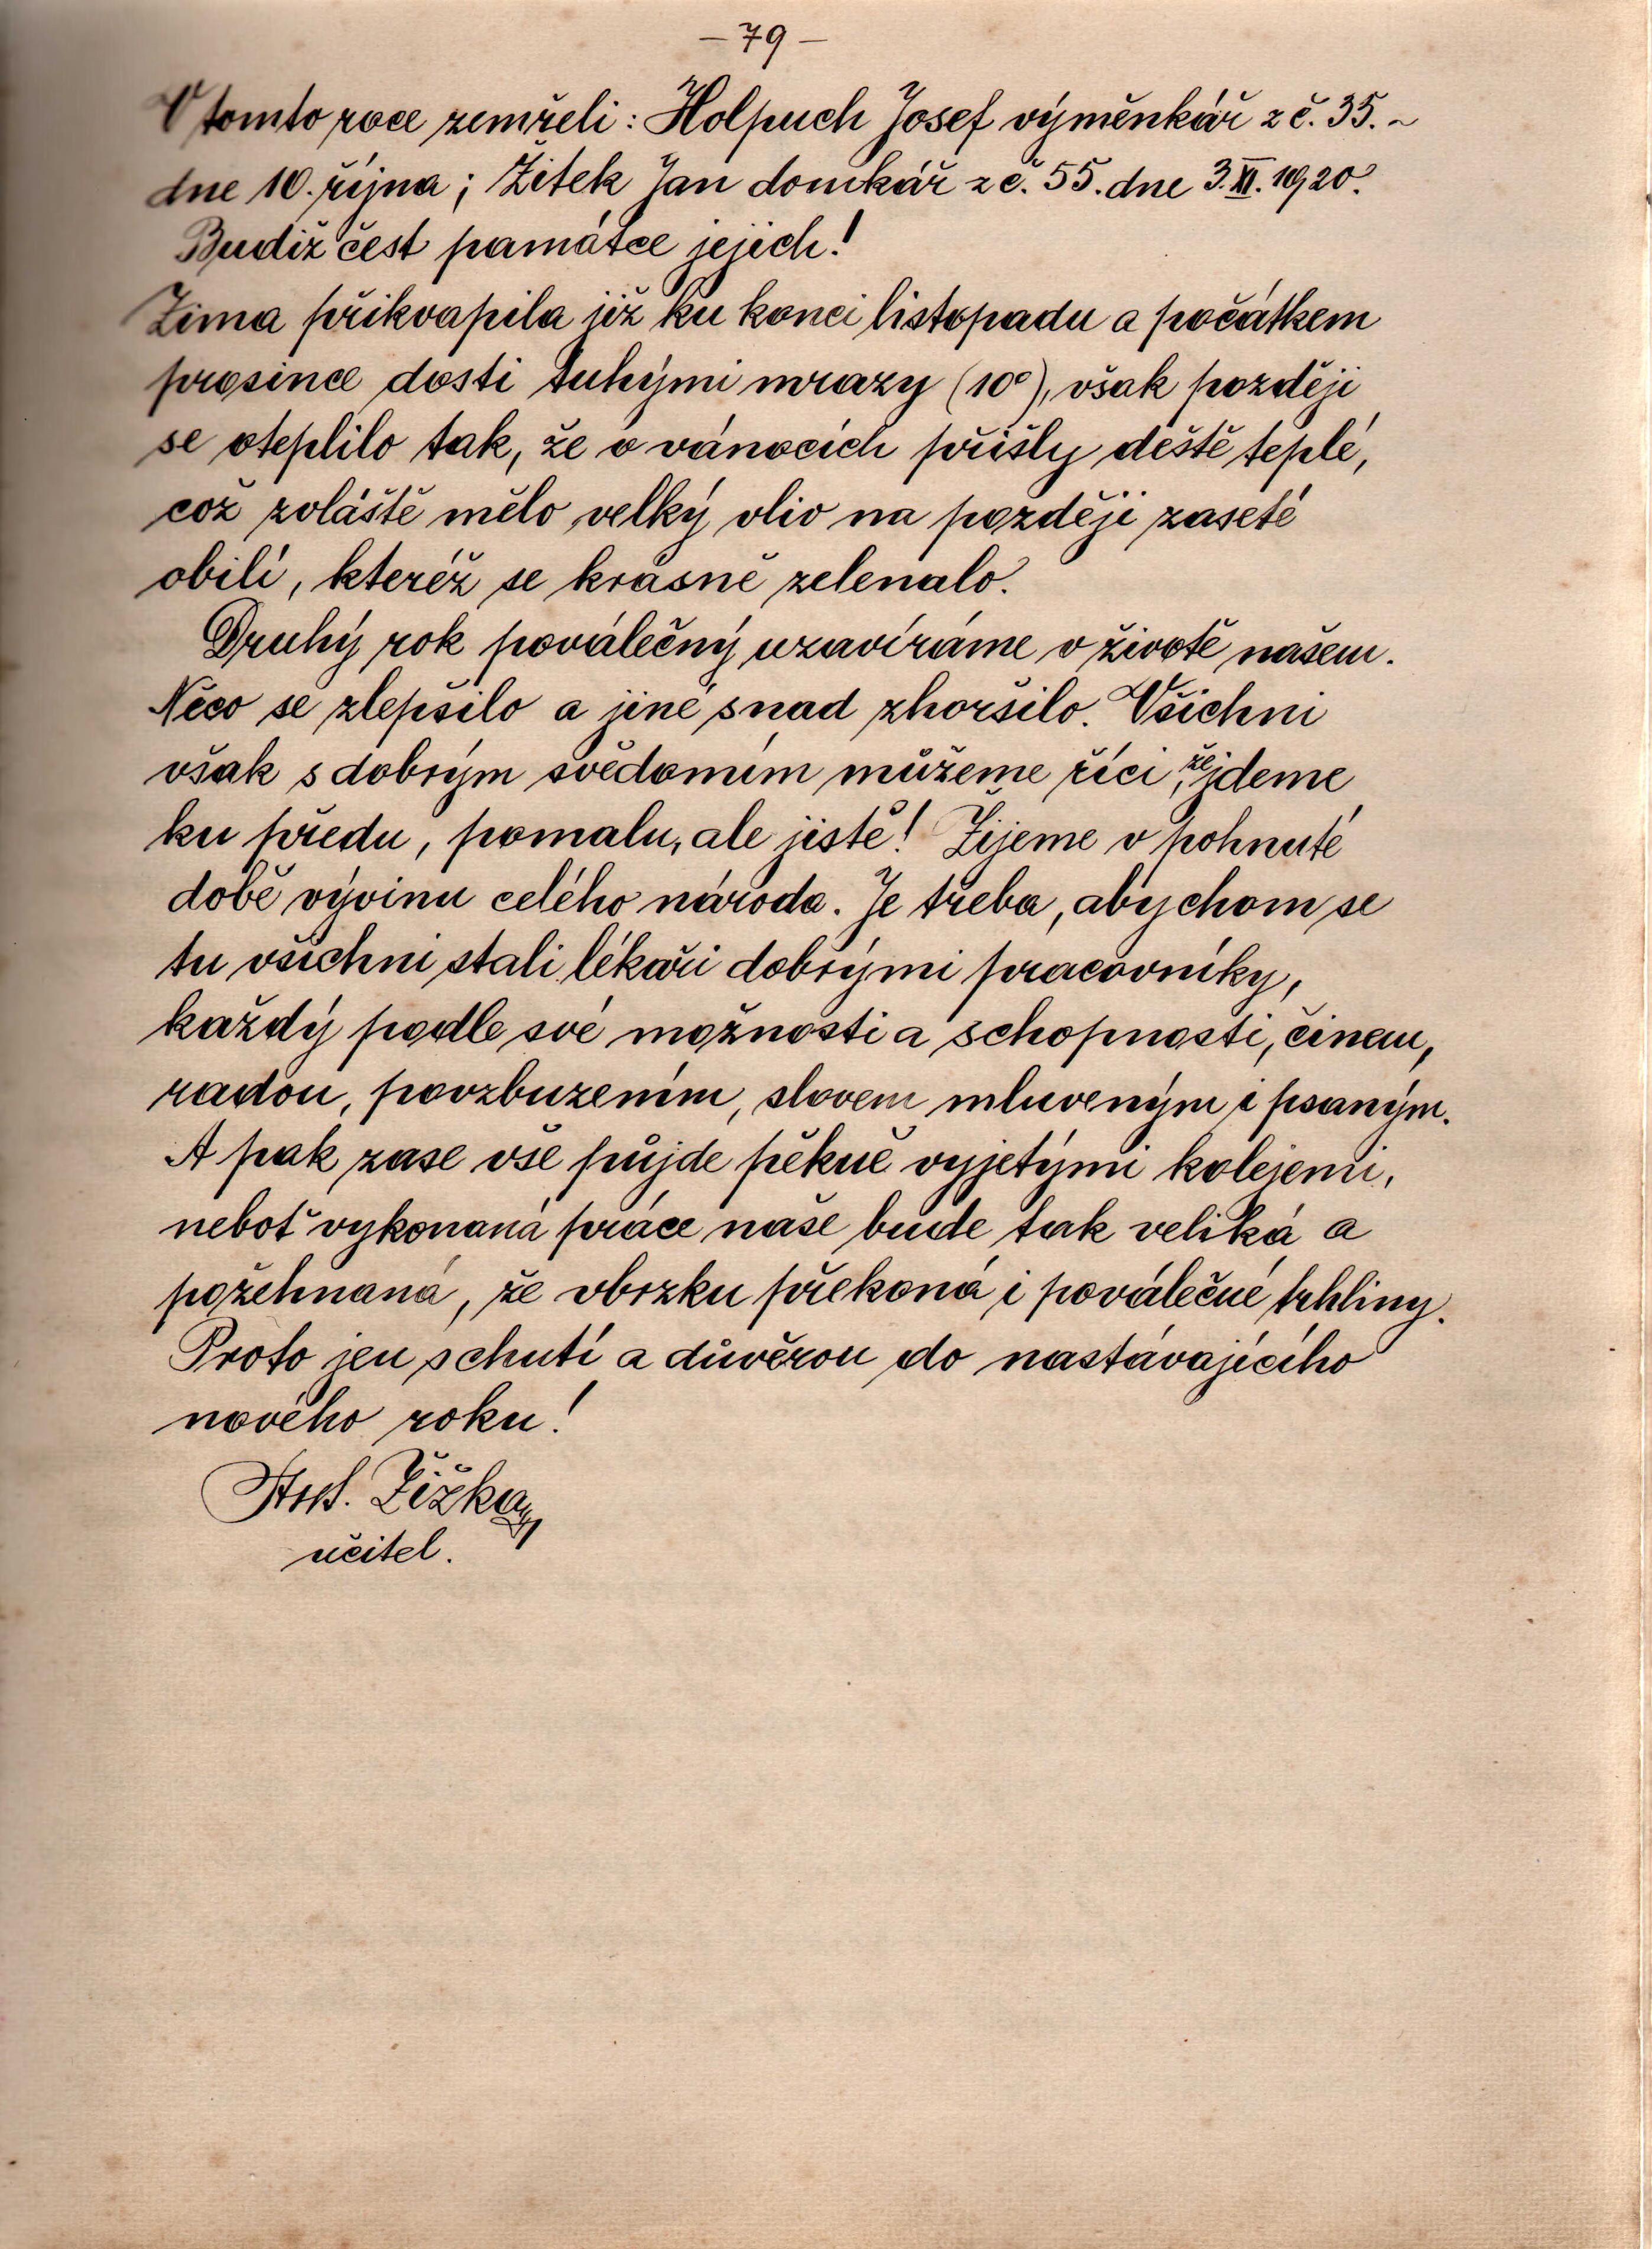 – 79 –
V tomto roce zemřeli : Holpuch Josef výměnkář z č. 35. ~
dne 10. října ; Žitek Jan domkář z č. 55. dne 3. XI. 1920.
Budiž čest památce jejich !
Zima přikvapila již ku konci listopadu a počátkem
prosince dosti tuhými mrazy (10°), však později
se oteplilo tak, že o vánocích přišly deště teplé,
což zvláště mělo velký vliv na později zaseté
obilí, kteréž se krásně zelenalo.
Druhý rok poválečný uzavíráme v životě našem.
Něco se zlepšilo a jiné snad zhoršilo. Všichni
však s dobrým svědomím můžeme říci, že jdeme
ku předu, pomalu, ale jistě ! Žijeme v pohnuté
době vývinu celého národa. Je třeba, abychom se
tu všichni stali lékaři dobrými pracovníky,
každý podle své možnosti a schopnosti, činem,
radou, povzbuzením, slovem mluveným i psaným.
A pak zase vše půjde pěkně vyjetými kolejemi,
neboť vykonaná práce naše bude tak veliká a
požehnaná, že vbrzku překoná i poválečné trhliny.
Proto jen s chutí a důvěrou do nastávajícího
nového roku !
Ant. Žižka
učitel.